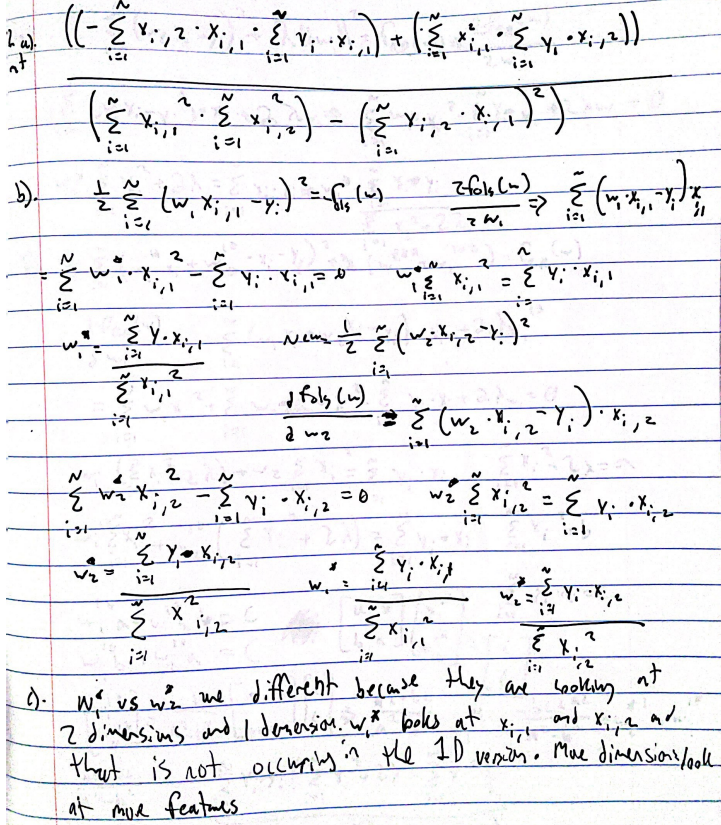 2 a).
nt
((- Σ_{i=1}^{N} x_{i,2} · x_{i,1} · Σ_{i=1}^{N} y_i · x_{i,1}) + (Σ_{i=1}^{N} x_{i,1}^2 · Σ_{i=1}^{N} y_i · x_{i,2}))
(Σ_{i=1}^{N} x_{i,1}^2 · Σ_{i=1}^{N} x_{i,2}^2) - (Σ_{i=1}^{N} x_{i,2} · x_{i,1})^2)
b). 1/2 Σ_{i=1}^{N} (w_1 x_{i,1} - y_i)^2 = f_{ols}(w) ∂f_{ols}(w)/∂w_1 => Σ_{i=1}^{N} (w_1 · x_{i,1} - y_i) · x_{i,1}
= Σ_{i=1}^{N} w_1^* · x_{i,1}^2 - Σ_{i=1}^{N} y_i · x_{i,1} = 0 w_1^* Σ_{i=1}^{N} x_{i,1}^2 = Σ_{i=1}^{N} y_i · x_{i,1}
w_1^* = Σ_{i=1}^{N} y · x_{i,1} / Σ_{i=1}^{N} x_{i,1}^2 1/2 Σ_{i=1}^{N} (w_2 · x_{i,2} - y_i)^2
∂f_{ols}(w)/∂w_2 = Σ_{i=1}^{N} (w_2 · x_{i,2} - y_i) · x_{i,2}
Σ_{i=1}^{N} w_2^* x_{i,2}^2 - Σ_{i=1}^{N} y_i · x_{i,2} = 0 w_2^* Σ_{i=1}^{N} x_{i,2}^2 = Σ_{i=1}^{N} y_i · x_{i,2}
w_2^* = Σ_{i=1}^{N} y_i · x_{i,2} / Σ_{i=1}^{N} x_{i,2}^2 w_1^* = Σ_{i=1}^{N} y_i · x_{i,1} / Σ_{i=1}^{N} x_{i,1}^2 w_2^* = Σ_{i=1}^{N} y_i · x_{i,2} / Σ_{i=1}^{N} x_{i,2}^2
c). w_1^* vs w_2^* are different because they are looking at
2 dimensions and 1 demension. w_1^* looks at x_{i,1} and x_{i,2} and
that is not occuring in the 1D version. More dimensions/look
at more features